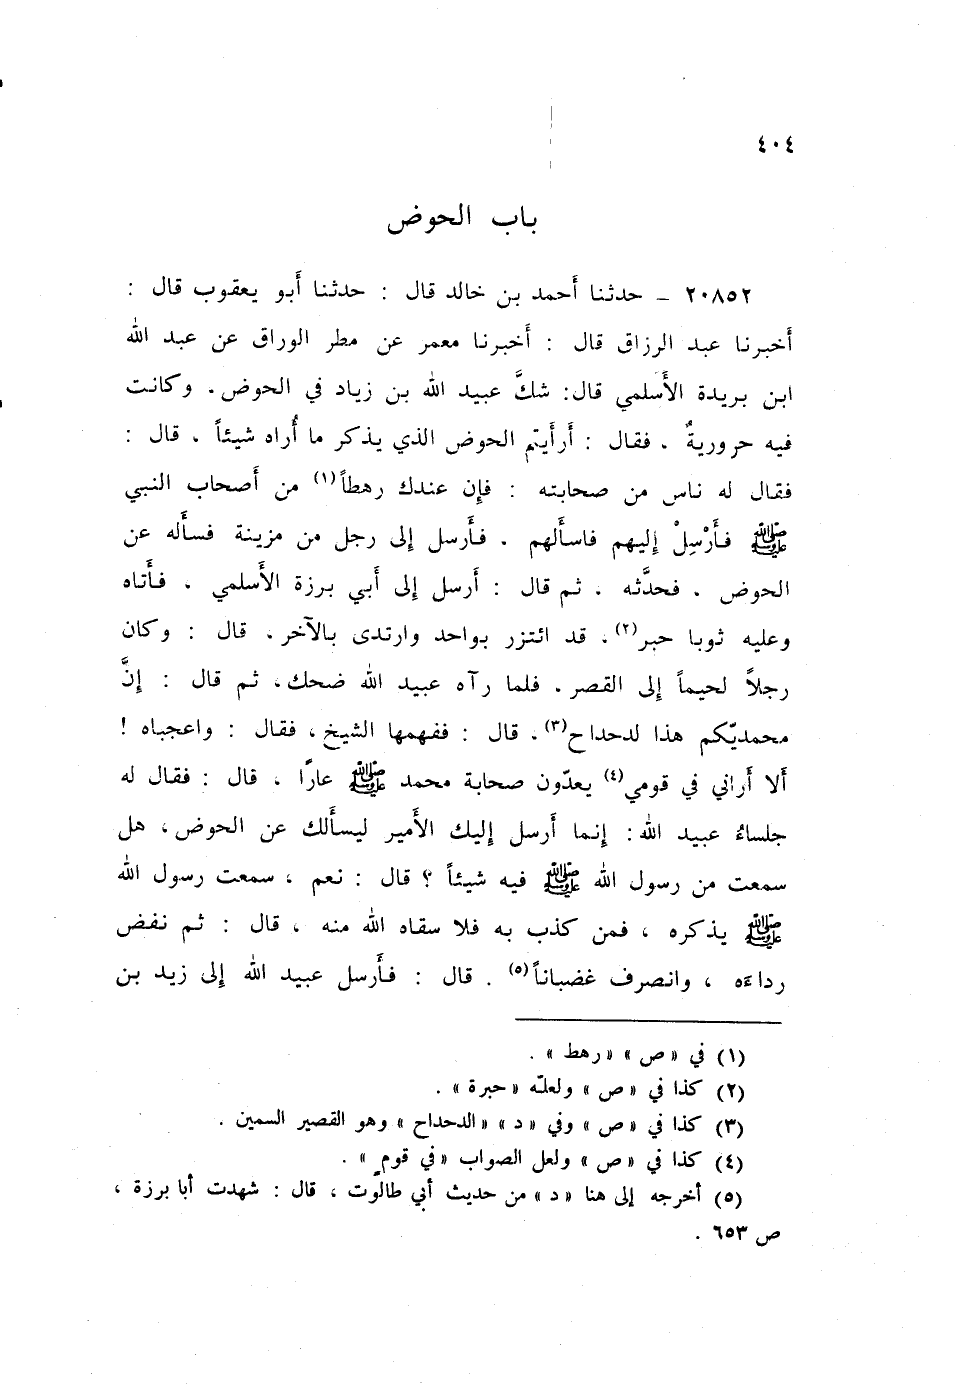 ٤٠٤
باب الحوض
٢٠٨٥٢ ـ حدثنا أحمد بن خالد قال : حدثنا أبو يعقوب قال :
أخبرنا عبد الرزاق قال : أخبرنا معمر عن مطر الوراق عن عبد الله
ابن بريدة الأسلمي قال: شكَّ عبيد الله بن زياد في الحوض. وكانت
فيه حروريةٌ . فقال : أرأيتم الحوض الذي يذكر ما أُراه شيئاً . قال :
فقال له ناس من صحابته : فإن عندك رهطاً(١) من أصحاب النبي
ﷺ فأَرْسِلْ إليهم فاسألهم . فأرسل إلى رجل من مزينة فسأله عن
الحوض . فحدَّثه . ثم قال : أرسل إلى أبي برزة الأسلمي . فأتاه
وعليه ثوبا حبر(٢). قد ائتزر بواحد وارتدى بالآخر. قال : وكان
رجلاً لحيماً إلى القصر. فلما رآه عبيد الله ضحك، ثم قال : إنَّ
محمديّكم هذا لدحداح(٣). قال : ففهمها الشيخ، فقال : واعجباه !
ألا أراني في قومي(٤) يعدّون صحابة محمد ﷺ عارًا . قال : فقال له
جلساءُ عبيد الله: إنما أرسل إليك الأمير ليسألك عن الحوض، هل
سمعت من رسول الله ﷺ فيه شيئاً ؟ قال : نعم ، سمعت رسول الله
ﷺ يذكره ، فمن كذب به فلا سقاه الله منه ، قال : ثم نفض
رداءه ، وانصرف غضباناً(٥) . قال : فأرسل عبيد الله إلى زيد بن
(١) في «ص» «رهط» .
(٢) كذا في «ص» ولعلّه «حبرة» .
(٣) كذا في «ص» وفي «د» «الدحداح» وهو القصير السمين .
(٤) كذا في «ص» ولعل الصواب «في قومٍ» .
(٥) أخرجه إلى هنا «د» من حديث أبي طالوت ، قال : شهدت أبا برزة ،
ص ٦٥٣ .